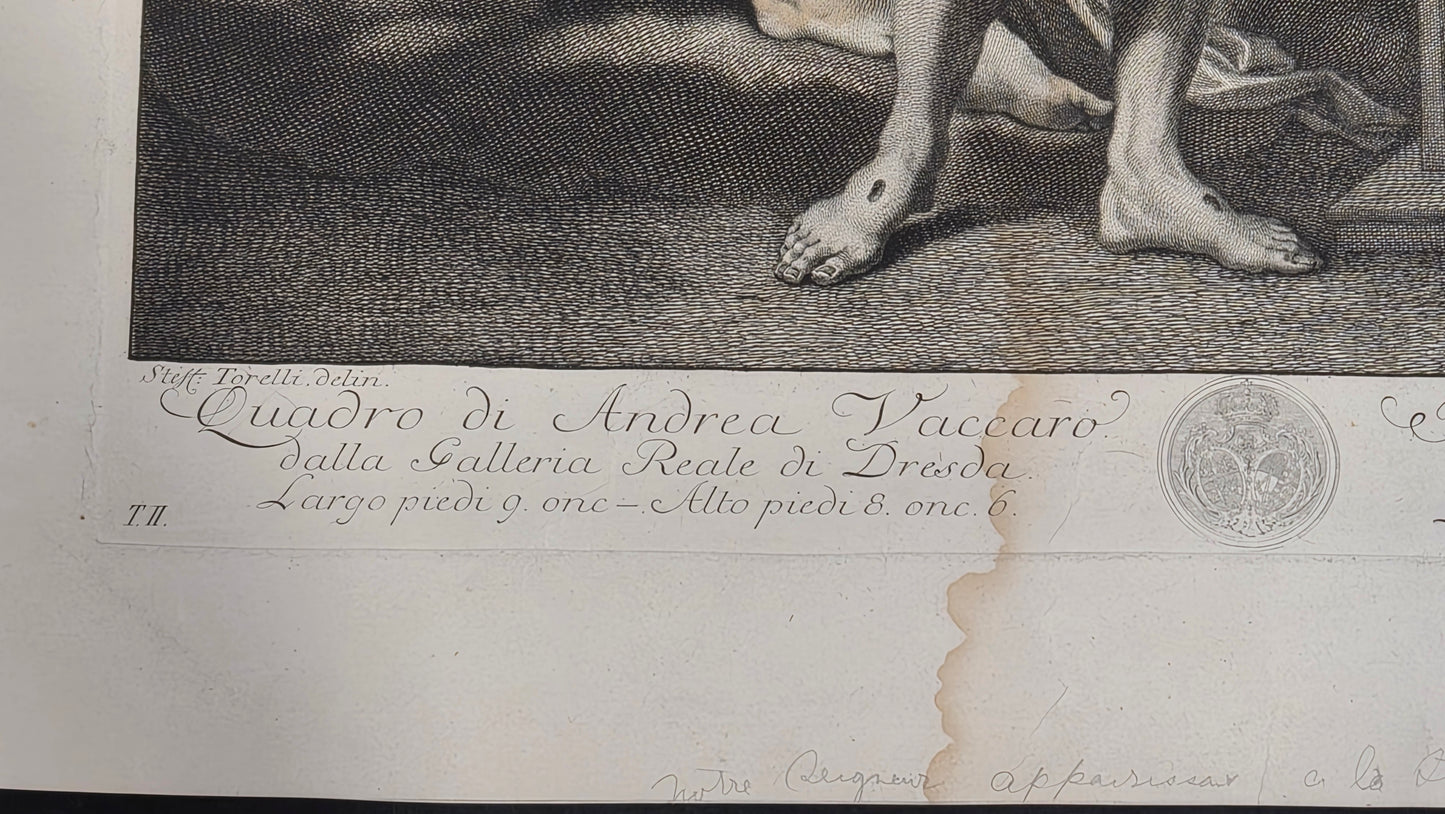 Steff: Torelli. delin.
Quadro di Andrea Vaccaro
dalla Galleria Reale di Dresda.
Largo piedi 9. onc –. Alto piedi 8. onc. 6.
T. II.
notre Seigneur apparissant a la